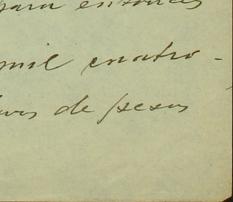 para entonces
mil cuatro-
de pesos